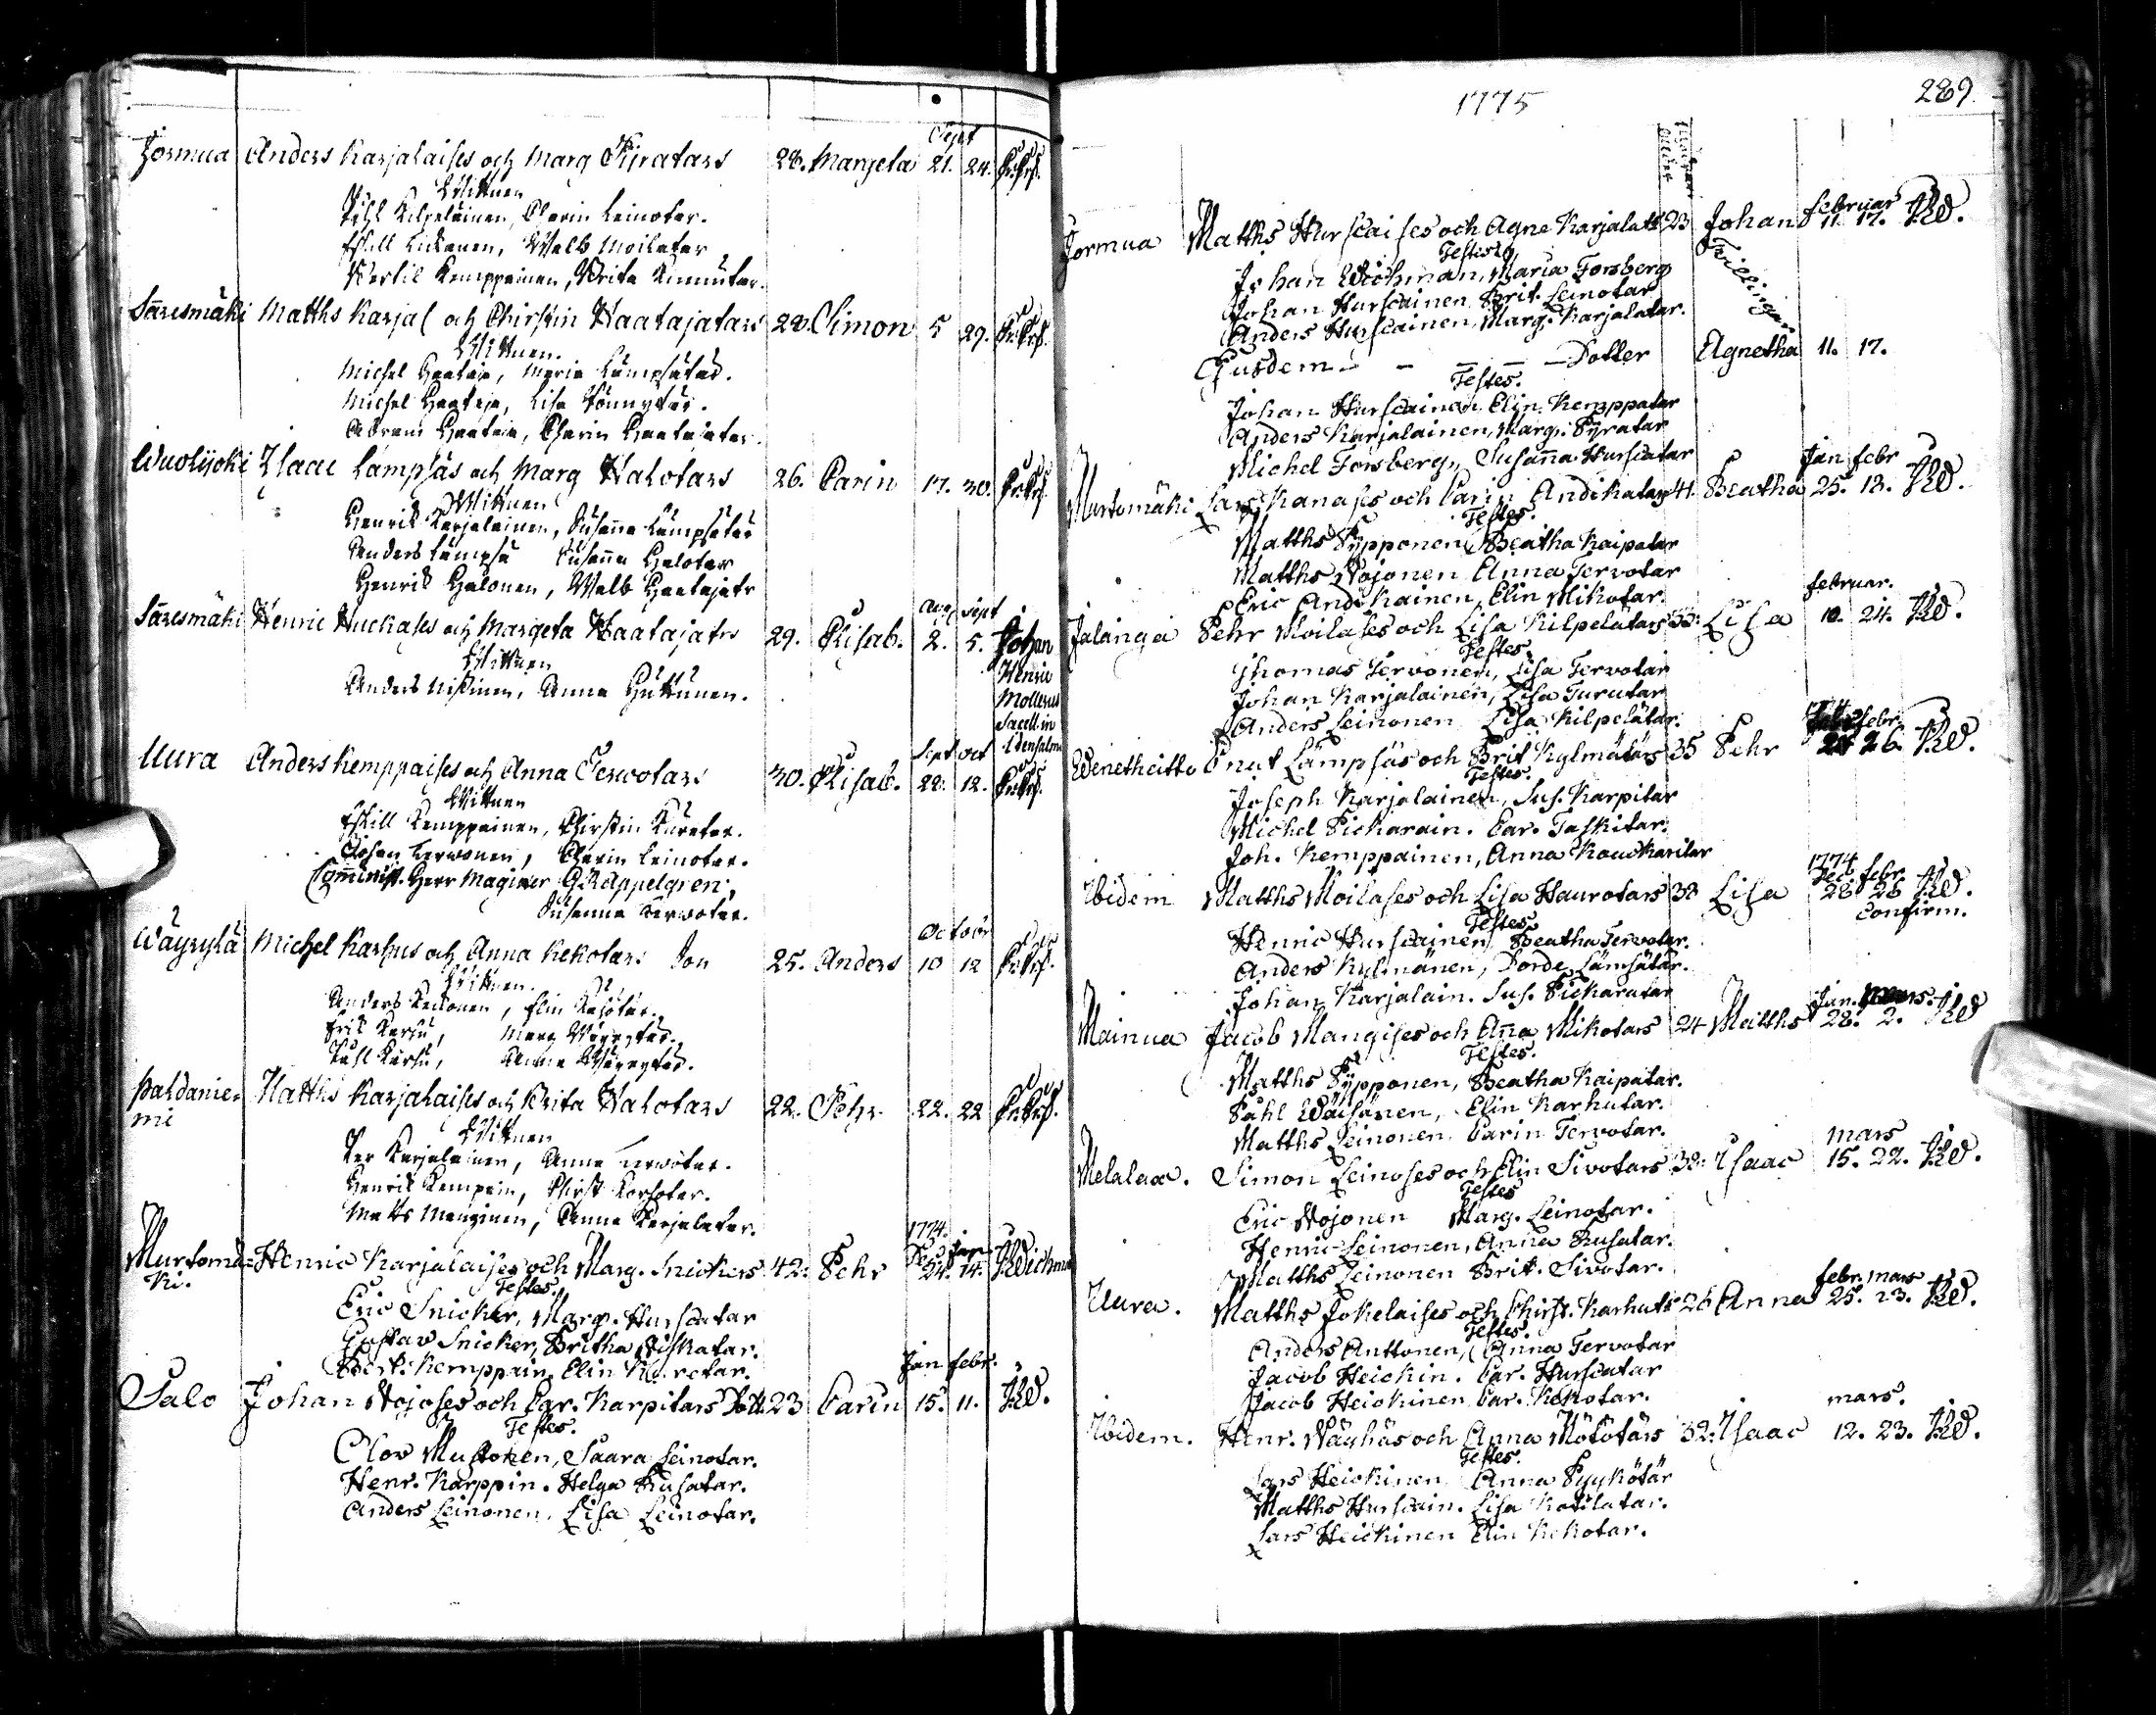 Sept
Jormua Anders Karjalaises och Marg Pyratars 28. Margeta 21. 24.
Wittnen
Påhl Kilpeläinen, Charin Leinotar.
Eskill Luckanen, Walb Moilatar
Bertil Kemppainen, Brita
Säresmäki Matths Karjal och Christin Haatajatars 28. Simon 5 29.
Wittnen.
Michel Haataja, Maria Lämpsätar.
Michel Haataja, Lisa
Abram Haataja, Charin Haatajatar.
Wuolijoki Isaac Lämpsäs och Marg Halotars 26. Carin 17. 30.
Wittnen
Henrik Karjalainen, Susanna Lämpsätär
Anders Lämpsä Susanna Halotar
Henrik Halonen, Walb Haatajatr
Aug Sept
Säresmäki Henric Huckases och Margeta Haatajatrs 29. Elisab. 2. 5. Johan
Henric
Mollerus
Sacell. in
Idensalmi
Wittnen
Anders Nissinen, Anna
Sept Oct
Uura Anders Kemppaises och Anna Terwotars 30. Elisab. 28. 12.
Wittnen
Eskill Kemppainen, Christin Kuratar.
Johan Terwonen, Charin Leinotar.
Comminist. Herr Magister G R Appelgren,
Susanna Terwotar.
October
Wäyrylä Michel Karhus och Anna Kekotars Son 25. Anders 10 12
Wittnen.
Anders Keckonen, Elin
Erik Karhu, Marg Wäyrytär.
Påhl Karhu, Anna Wäyrytär.
Paldanie-
mi Matths Karjalaises och Brita Halotars 22. Pehr 22. 22
Wittnen
Per Karjalainen, Anna Terwotar.
Henrik Kempain, Christ Korhotar.
Matts Manginen, Anna Karjalatar.
1774.
Dec Jan
Murtomä-
ki. Henric Karjalaises och Marg. Snickers 42. Pehr 24. 14. JWichma
Testes.
Eric Snicker, Marg. Hurscatar
Gustav Snicker, Britha Niskatar.
Bert. Kemppain, Elin Kuretar.
Jan febr.
Salo Johan Wojoses och Car. Karpitars Dott 23 Carin 15. 11. JW.
Testes.
Olov Mustonen, Saara Leinotar.
Henr. Karppin. Helga Rusatar.
Anders Leinonen, Lisa Leinotar.
1775 289.
februar
Jormua Matths Hurscaises och Agne Karjalatr 23 Johan 11. 17. JW.
Testes
Johan Wichman, Maria Forsberg
Johan Hurscainen Brit. Leinotar
Anders Hurscainen, Marg. Karjalatar.
Tvillingar
Ejusdem - - - - Dotter Agnetha 11. 17.
Testes.
Johan Hurscainen Elin Kemppatar
Anders Karjalainen, Marg. Pyratar
Michel Forsberg, Susanna Hurscatar
Jan febr
Murtomäki Lars Kanases och Carin Andikatars 41. Beatha 25. 13. JW.
Testes.
Matths Pypponen, Beatha Kaipatar
Matths Wojonen Anna Tervotar
Eric Andikainen, Elin Mikotar.
februar.
Jalanga Pehr Moilases och Lisa Kilpelätars 33. Lisa 10. 24. JW.
Testes.
Thomas Tervonen, Lisa Tervotar
Johan Karjalainen, Lisa Turutar
Anders Leinonen Lisa Kilpelätar.
febr.
Wenetheitto Cnut Lämpsäs och Brit Kylmätärs 35 Pehr 26. JW.
Testes.
Joseph Karjalainen, Sus. Karpitar
Michel Pickarain. Car. Taskitar.
Joh. Kemppainen, Anna Kouckaritar
1774
Dec febr.
Ibidem Matths Moilases och Lisa Haurotars 38 Lisa 28 26 JW.
Confirm.
Testes
Henric Hurscainen Beatha Tervotar.
Anders Kylmänen, Dorde Lämsätär.
Johan Karjalain. Sus. Pickaratar
Jan. mars.
Mainua Jacob Mangises och Anna Mikotars 24 Matths 28. 2. JW
Testes.
Matths Pypponen, Beatha Kaipatar.
Påhl Wäisänen, Elin Karhutar.
Matths Leinonen. Carin Tervotar.
mars
Melalax. Simon Leinoses och Elin Sivotars 38. Isaac 15. 22. JW.
Testes
Eric Wojonen Marg. Leinotar.
Henric Leinonen, Anna Rusatar.
Matths Leinonen Brit. Sivotar.
febr. mars
Uura. Matths Jokelaises och Christ. Karhutr 26 Anna 25. 23. JW.
Testes.
Anders Anttonen, Anna Tervotar
Jacob Heickin. Car. Hurscatar
Jacob Heickinen Car. Kekotar.
mars.
Ibidem. Henr. Väyhäs och Anna Mökötärs 32. Isaac 12. 23. JW.
Testes.
Lars Heickinen Anna Pyykötär
Matths Hurscain. Lisa Kotilatar.
Lars Heickinen Elin Kekotar.